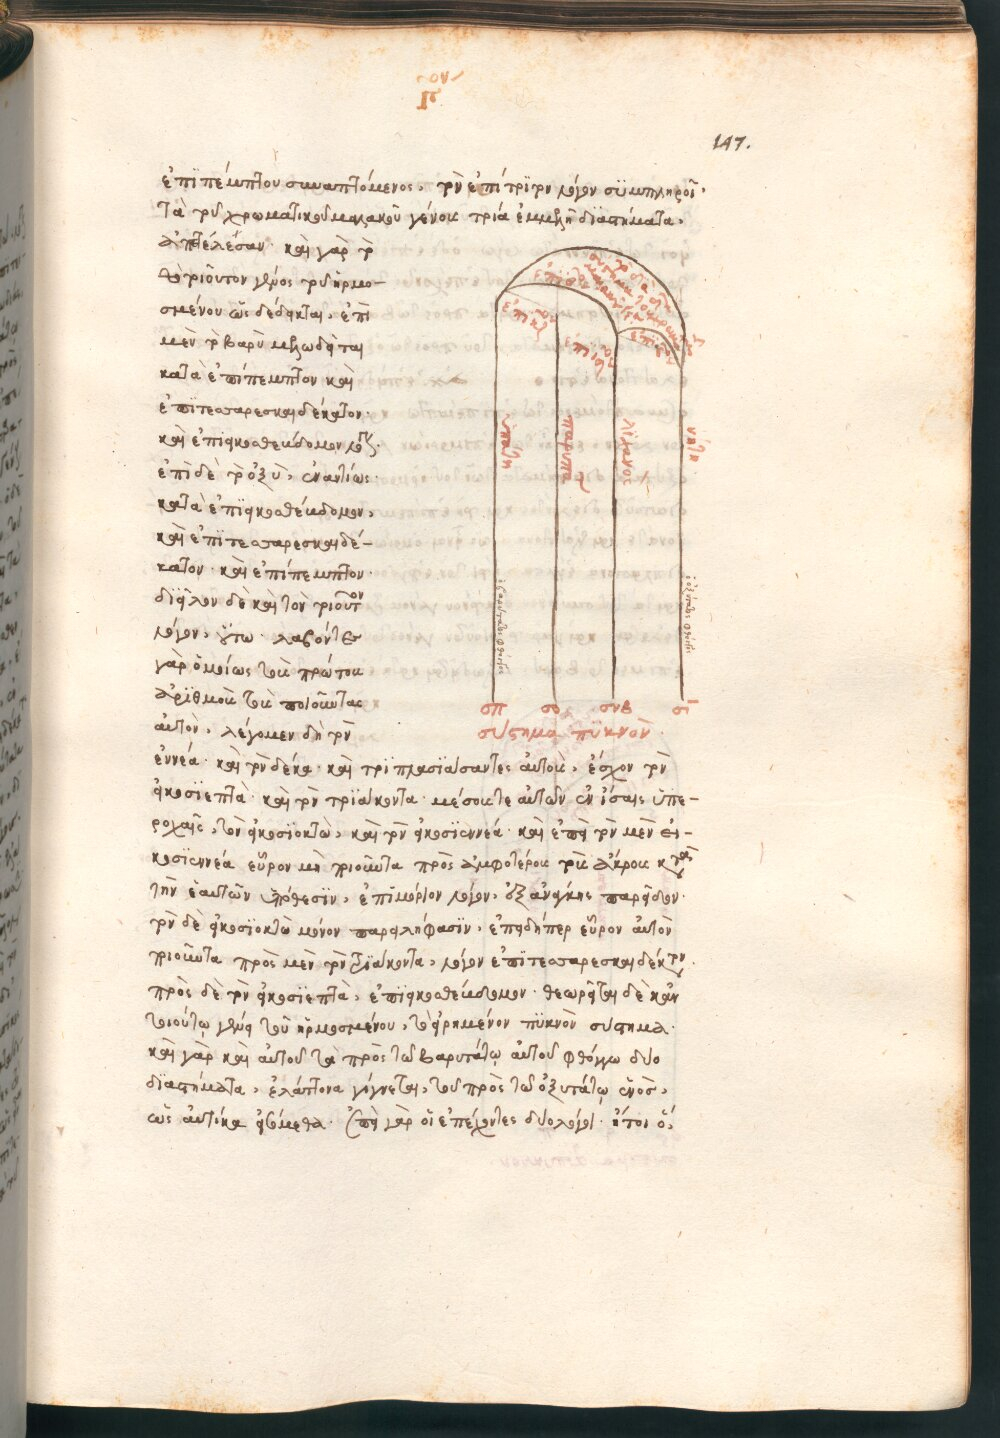 147.
ἐπιπέμπτου συναπτόμενος, τὸν ἐπίτριτον λόγον συμπληροῖ·
τὰ τοῦ χρωματικοῦ μαλακοῦ γένους τρία ἐμμελῆ διαστήματα,
ἀπετέλεσαν· καὶ γὰρ τὸ
τοιοῦτον γένος τοῦ ἡρμο-
σμένου ὡς δέδεικται, ἐπὶ
μὲν τὸ βαρὺ μελῳδεῖται
κατὰ ἐπιπέμπτον καὶ
ἐπιτεσσαρεσκαιδέκατον·
καὶ ἐπιεικοσθέβδομον λόγον·
ἐπὶ δὲ τὸ ὀξὺ, ἐναντίως·
κατὰ ἐπιεικοσθέβδομον,
καὶ ἐπιτεσσαρεσκαιδέ-
κατον· καὶ ἐπιπέμπτον·
δῆλον δὲ καὶ τὸν τοιοῦτον
λόγον, οὕτω· λαβόντες
γὰρ ὁμοίως τοὺς πρώτους
ἀριθμοὺς τοὺς ποιοῦντας
αὐτὸν, λέγομεν δὴ τὸν
ἐννέα· καὶ τὸν δέκα· καὶ τριπλασιάσαντες αὐτοὺς, ἔσχον τὸν
εἰκοσιεπτὰ· καὶ τὸν τριάκοντα· μέσους τε αὐτῶν ἐν ἴσαις ὑπε-
ροχαῖς, τὸν εἰκοσιοκτὼ, καὶ τὸν εἰκοσιεννέα· καὶ ἐπεὶ τὸν μὲν εἰ-
κοσιεννέα εὗρον μὴ ποιοῦντα πρὸς ἀμφοτέρους τοὺς ἄκρους κατὰ
τὴν ἑαυτῶν ὑπόθεσιν, ἐπιμόριον λόγον, ἐξανάγκης παρεῖδον·
τὸν δὲ εἰκοσιοκτὼ μόνον παρειλήφασιν, ἐπειδήπερ εὗρον αὐτὸν
ποιοῦντα πρὸς μὲν τὸν τριάκοντα, λόγον ἐπιτεσσαρεσκαιδέκατον·
πρὸς δὲ τὸν εἰκοσιεπτὰ, ἐπιεικοσθέβδομον· θεωρεῖται δὲ κἀν
τοιούτῳ γένει τοῦ ἡρμοσμένου, τὸ εἰρημένον πυκνὸν σύστημα·
καὶ γὰρ καὶ αὐτοῦ τὰ πρὸς τῷ βαρυτάτῳ αὐτοῦ φθόγγῳ δύο
διαστήματα, ἐλάττονα γίγνεται, τοῦ πρὸς τῷ ὀξυτάτῳ ἑνὸς,
ὡς αὐτίκα εἰσόμεθα· ἐπεὶ γὰρ οἱ ἐπέχοντες δύο λόγοι· ἤτοι ὅ,
ὑπάτη
παρυπάτη
λίχανος
νήτη
ὁ βαρύτατος φθόγγος
ὁ ὀξύτατος φθόγγος
σπ σο σνβ σι
σύστημα πυκνὸν